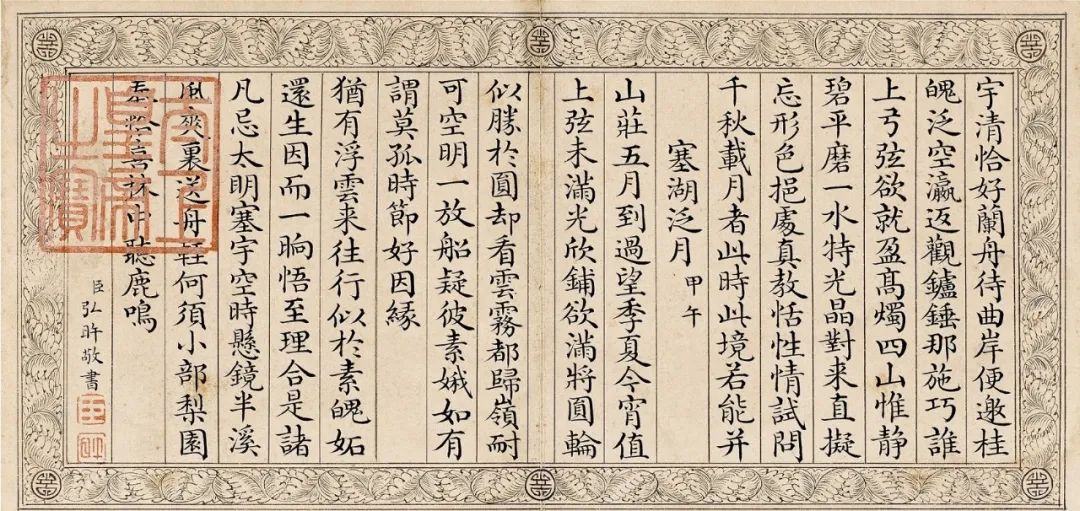 宇清恰好蘭舟待曲岸便邀桂
魄泛空瀛返觀鑪錘那施巧誰
上弓弦欲就盈髙燭四山惟静
碧平磨一水特光晶對来直擬
忘形色挹處真教恬性情試問
千秋載月者此時此境若能并
塞湖泛月 甲午
山莊五月到過望季夏今宵值
上弦未滿光欣鋪欲滿將圓輪
似勝於圓却看雲霧都歸嶺耐
可空明一放船疑彼素娥如有
謂莫孤時節好因緣
猶有浮雲来往行似於素魄妬
還生因而一晌悟至理合是諸
凡忌太明塞宇空時懸鏡半溪
風爽裏泛舟輕何須小部梨園
奏恰喜林中聽鹿鳴
臣弘旿敬書
太上皇帝之寶
臣